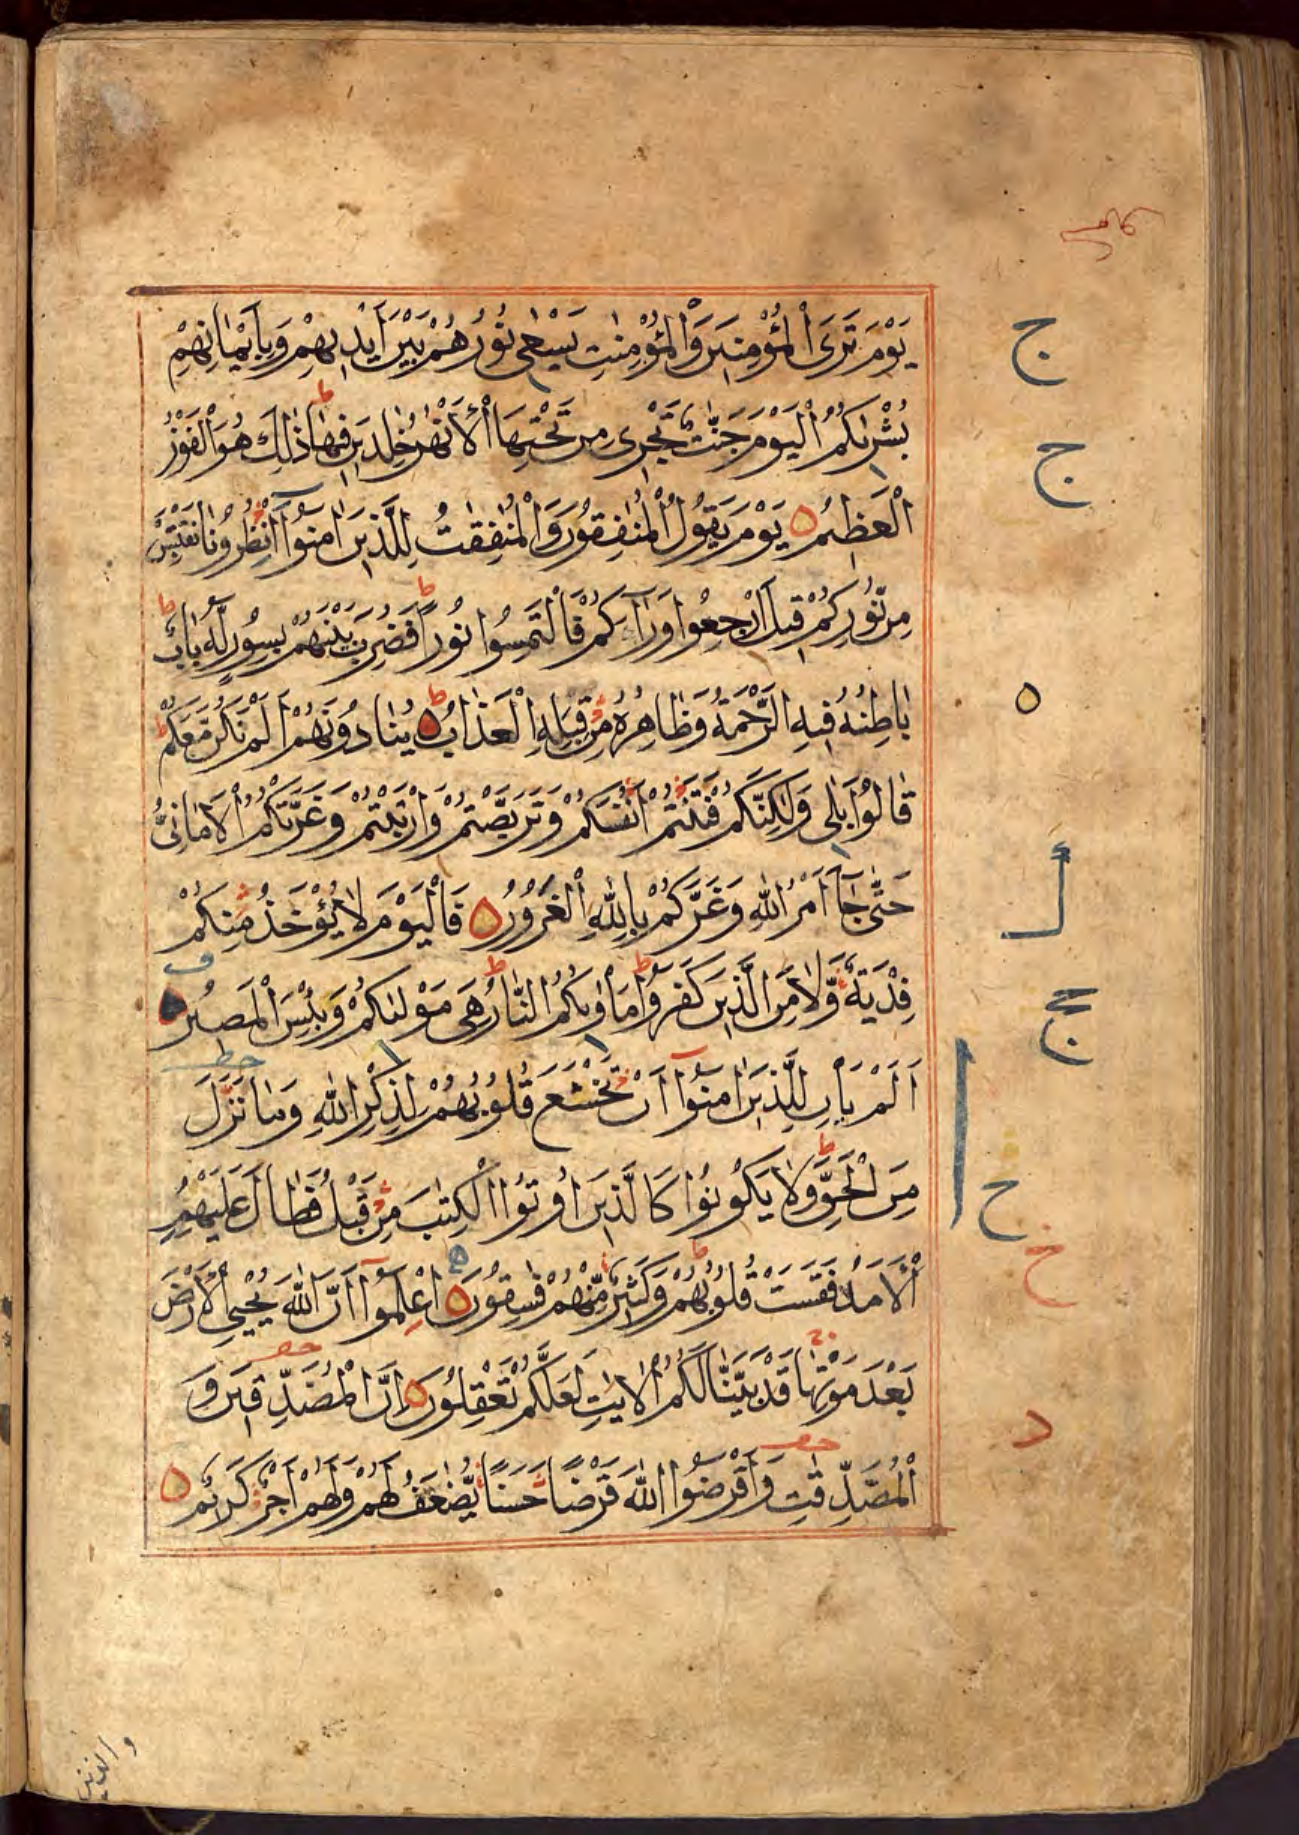 يَوْمَ تَرَى الْمُؤْمِنِينَ وَالْمُؤْمِنٰتِ يَسْعٰى نُورُهُمْ بَيْنَ أَيْدِيهِمْ وَبِأَيْمَانِهِمْ
بُشْرٰىكُمُ الْيَوْمَ جَنّٰتٌ تَجْرِى مِنْ تَحْتِهَا الْأَنْهٰرُ خٰلِدِينَ فِيهَا ذٰلِكَ هُوَ الْفَوْزُ
الْعَظِيمُ يَوْمَ يَقُولُ الْمُنٰفِقُونَ وَالْمُنٰفِقٰتُ لِلَّذِينَ اٰمَنُوا انْظُرُونَا نَقْتَبِسْ
مِنْ نُورِكُمْ قِيلَ ارْجِعُوا وَرَاءَكُمْ فَالْتَمِسُوا نُورًا فَضُرِبَ بَيْنَهُمْ بِسُورٍ لَهُ بَابٌ
بَاطِنُهُ فِيهِ الرَّحْمَةُ وَظَاهِرُهُ مِنْ قِبَلِهِ الْعَذَابُ يُنَادُونَهُمْ أَلَمْ نَكُنْ مَعَكُمْ
قَالُوا بَلٰى وَلٰكِنَّكُمْ فَتَنْتُمْ أَنْفُسَكُمْ وَتَرَبَّصْتُمْ وَارْتَبْتُمْ وَغَرَّتْكُمُ الْأَمَانِىُّ
حَتّٰى جَاءَ أَمْرُ اللهِ وَغَرَّكُمْ بِاللهِ الْغَرُورُ فَالْيَوْمَ لَا يُؤْخَذُ مِنْكُمْ
فِدْيَةٌ وَلَا مِنَ الَّذِينَ كَفَرُوا مَأْوٰىكُمُ النَّارُ هِىَ مَوْلٰىكُمْ وَبِئْسَ الْمَصِيرُ
أَلَمْ يَأْنِ لِلَّذِينَ اٰمَنُوا أَنْ تَخْشَعَ قُلُوبُهُمْ لِذِكْرِ اللهِ وَمَا نَزَلَ
مِنَ الْحَقِّ وَلَا يَكُونُوا كَالَّذِينَ أُوتُوا الْكِتٰبَ مِنْ قَبْلُ فَطَالَ عَلَيْهِمُ
الْأَمَدُ فَقَسَتْ قُلُوبُهُمْ وَكَثِيرٌ مِنْهُمْ فٰسِقُونَ اعْلَمُوا أَنَّ اللهَ يُحْيِى الْأَرْضَ
بَعْدَ مَوْتِهَا قَدْ بَيَّنَّا لَكُمُ الْاٰيٰتِ لَعَلَّكُمْ تَعْقِلُونَ إِنَّ الْمُصَّدِّقِينَ وَ
الْمُصَّدِّقٰتِ وَأَقْرَضُوا اللهَ قَرْضًا حَسَنًا يُضٰعَفُ لَهُمْ وَلَهُمْ أَجْرٌ كَرِيمٌ
والذين